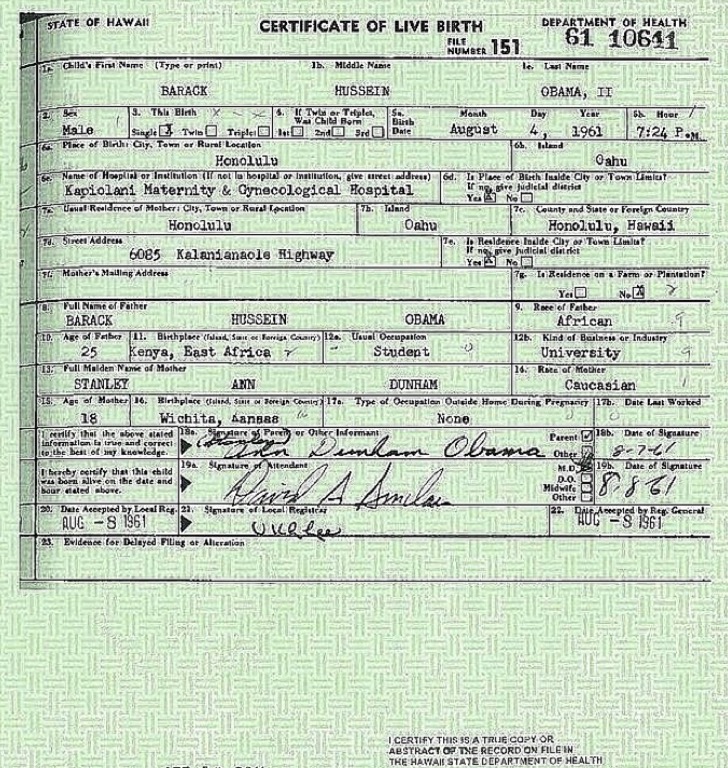 STATE OF HAWAII
CERTIFICATE OF LIVE BIRTH
DEPARTMENT OF HEALTH
FILE NUMBER 151
61 10641
1a. Child's First Name (Type or print)
1b. Middle Name
1c. Last Name
BARACK
HUSSEIN
OBAMA, II
2. Sex
Male
3. This Birth
Single X Twin Triplet
4. If Twin or Triplet, Was Child Born
1st 2nd 3rd
5a. Birth Date
Month Day Year
August 4, 1961
5b. Hour
7:24 P.M.
6a. Place of Birth: City, Town or Rural Location
Honolulu
6b. Island
Oahu
6c. Name of Hospital or Institution (If not in hospital or institution, give street address)
Kapiolani Maternity & Gynecological Hospital
6d. Is Place of Birth Inside City or Town Limits?
If no, give judicial district
Yes X No
7a. Usual Residence of Mother: City, Town or Rural Location
Honolulu
7b. Island
Oahu
7c. County and State or Foreign Country
Honolulu, Hawaii
7d. Street Address
6085 Kalanianaole Highway
7e. Is Residence Inside City or Town Limits?
If no, give judicial district
Yes X No
7f. Mother's Mailing Address
7g. Is Residence on a Farm or Plantation?
Yes No X
8. Full Name of Father
BARACK HUSSEIN OBAMA
9. Race of Father
African 9
10. Age of Father
25
11. Birthplace (Island, State or Foreign Country)
Kenya, East Africa
12a. Usual Occupation
Student 0
12b. Kind of Business or Industry
University 9
13. Full Maiden Name of Mother
STANLEY ANN DUNHAM
14. Race of Mother
Caucasian 1
15. Age of Mother
18
16. Birthplace (Island, State or Foreign Country)
Wichita, Kansas
17a. Type of Occupation Outside Home During Pregnancy
None
17b. Date Last Worked
I certify that the above stated
information is true and correct
to the best of my knowledge.
18a. Signature of Parent or Other Informant
(Stanley) Ann Dunham Obama
Parent
Other
18b. Date of Signature
8-7-61
I hereby certify that this child
was born alive on the date and
hour stated above.
19a. Signature of Attendant
David A Sinclair
M.D.
D.O.
Midwife
Other
19b. Date of Signature
8-8-61
20. Date Accepted by Local Reg.
AUG -8 1961
21. Signature of Local Registrar
22. Date Accepted by Reg. General
AUG -8 1961
23. Evidence for Delayed Filing or Alteration
I CERTIFY THIS IS A TRUE COPY OR
ABSTRACT OF THE RECORD ON FILE IN
THE HAWAII STATE DEPARTMENT OF HEALTH